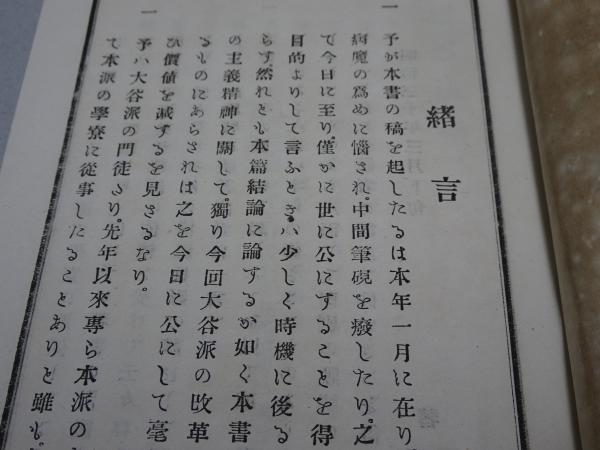 緒言
一 予が本書の稿を起したるは本年一月に在り。
病魔の爲めに惱され。中間筆硯を癈したり。之
で今日に至り。僅かに世に公にすることを得
目的よりして言ふときハ少しく時機に後る
らす。然れとも本篇結論に論するか如く本書
の主義精神に關して。獨り今回大谷派の改革
るものにあらされは之を今日に公にして毫
ひ價値を減するを見さるなり。
一 予ハ大谷派の門徒なり。先年以來專ら本派の
て本派の學寮に從事したることありと雖も。